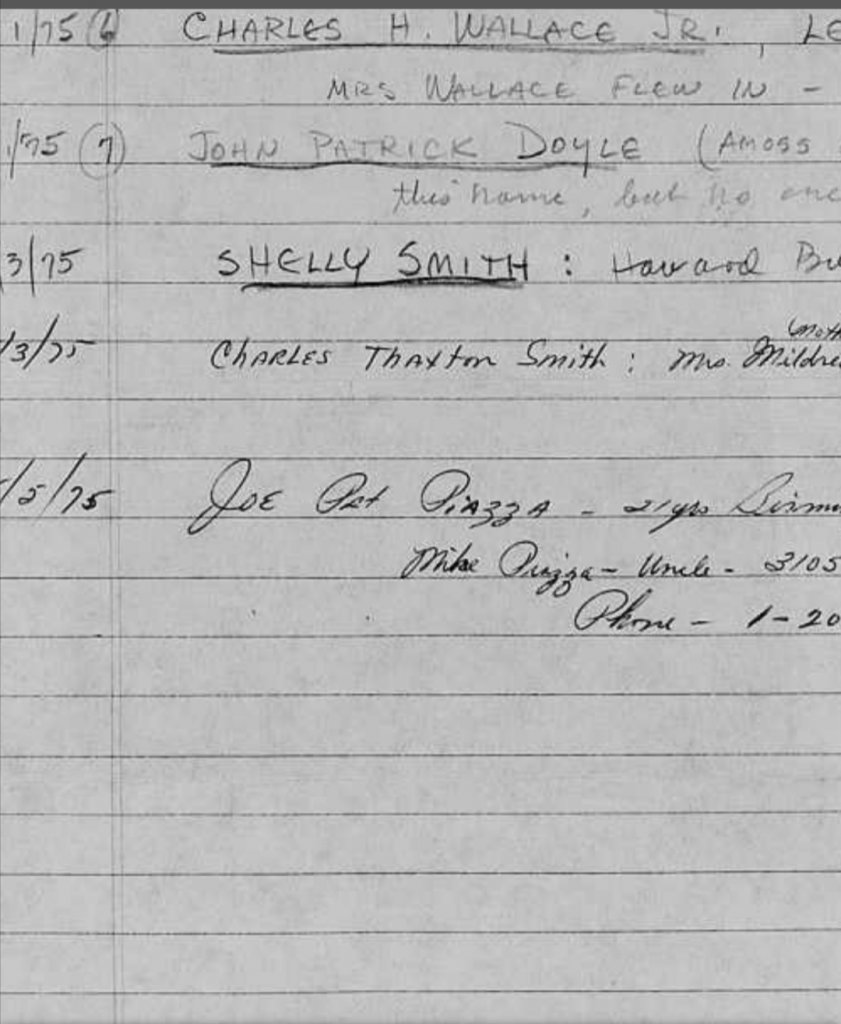 1/75 (6) CHARLES H. WALLACE JR., LE
MRS WALLACE FLEW IN -
1/75 (7) JOHN PATRICK DOYLE (AMOSS
this name, but no one
3/75 SHELLY SMITH: Howard Bu
(moth
/3/75 CHARLES Thaxton Smith: Mrs. Mildre
/5/75 JOE Pat PIAZZA - 21 yrs Birm
Mike Piazza - Uncle - 3105
Phone - 1-20